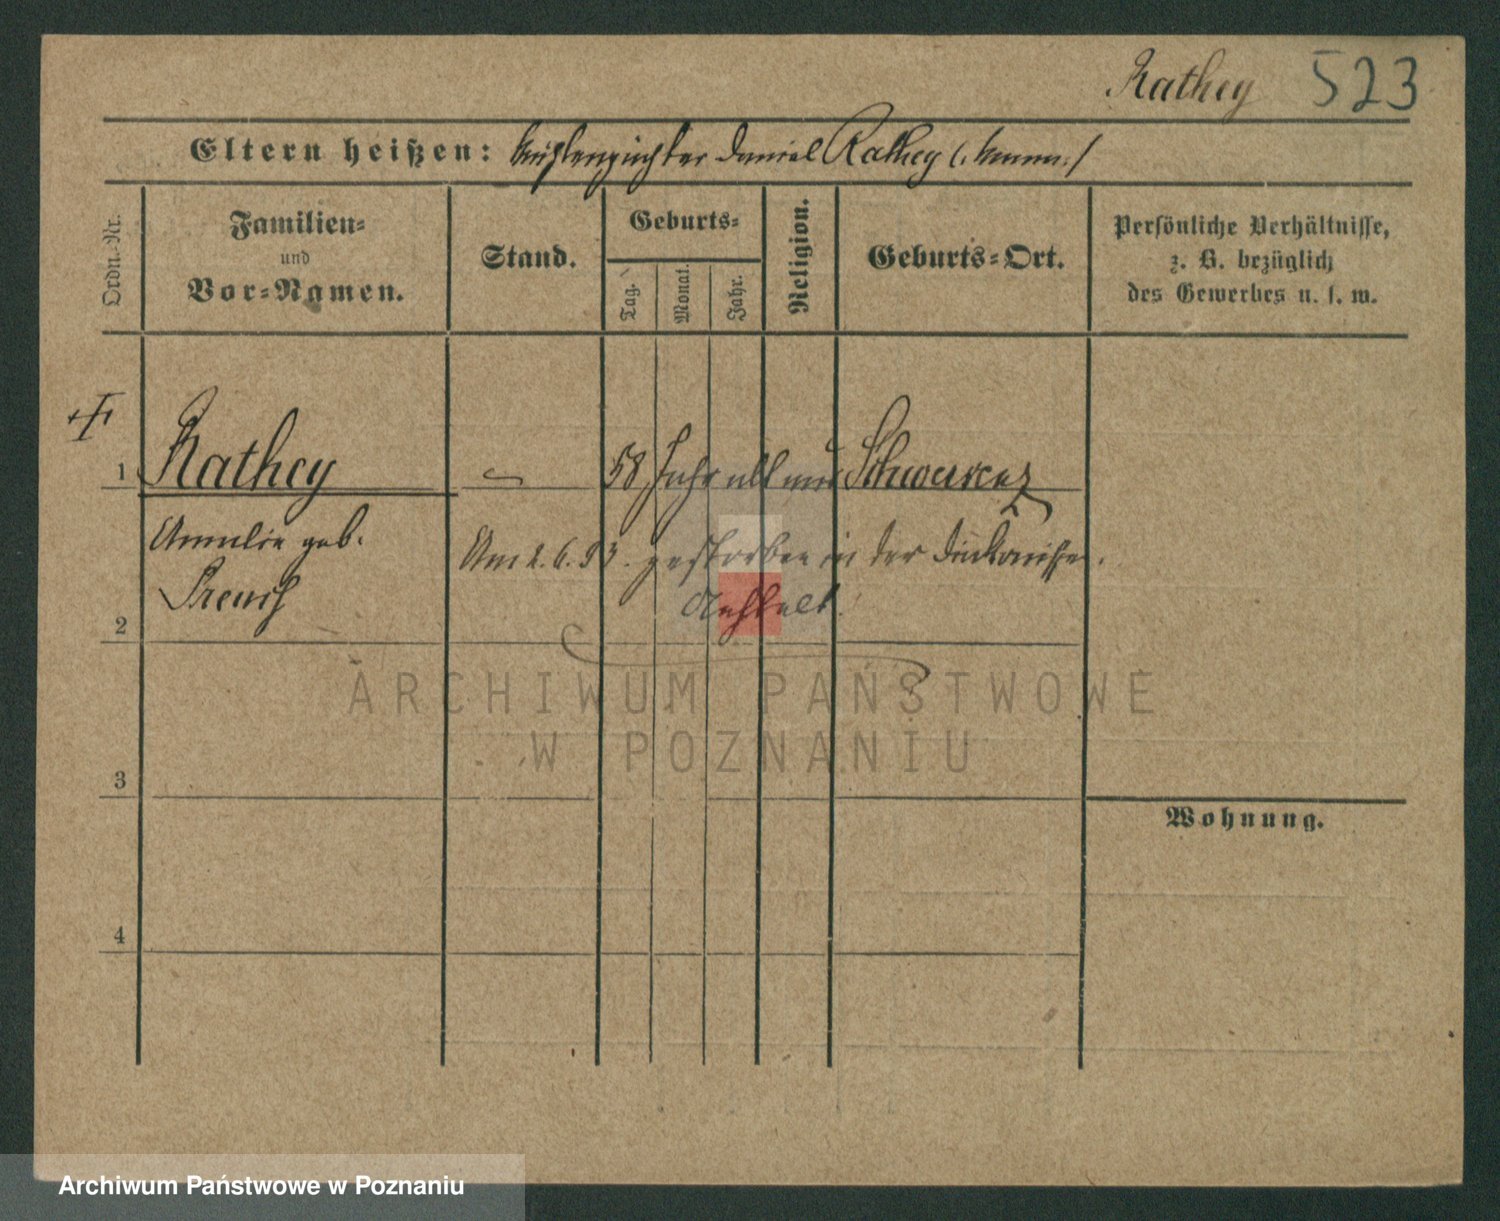 Rathey 523
Eltern heißen: Mühlenpächter Daniel Rathey (: Mann :/
Ordn.-Nr.
Familien-
und
Vor-Namen.
Stand.
Geburts-
Tag.
Monat.
Jahr.
Religion.
Geburts-Ort.
Persönliche Verhältnisse,
z. B. bezüglich
des Gewerbes u. s. w.
1 Rathey — 58 Jahr alt aus Schwersenz
Amalie geb. Am 2.6.93. gestorben in der Diakonissen
Anstalt.
2
ARCHIWUM PAŃSTWOWE
W POZNANIU
3
Wohnung.
4
Archiwum Państwowe w Poznaniu